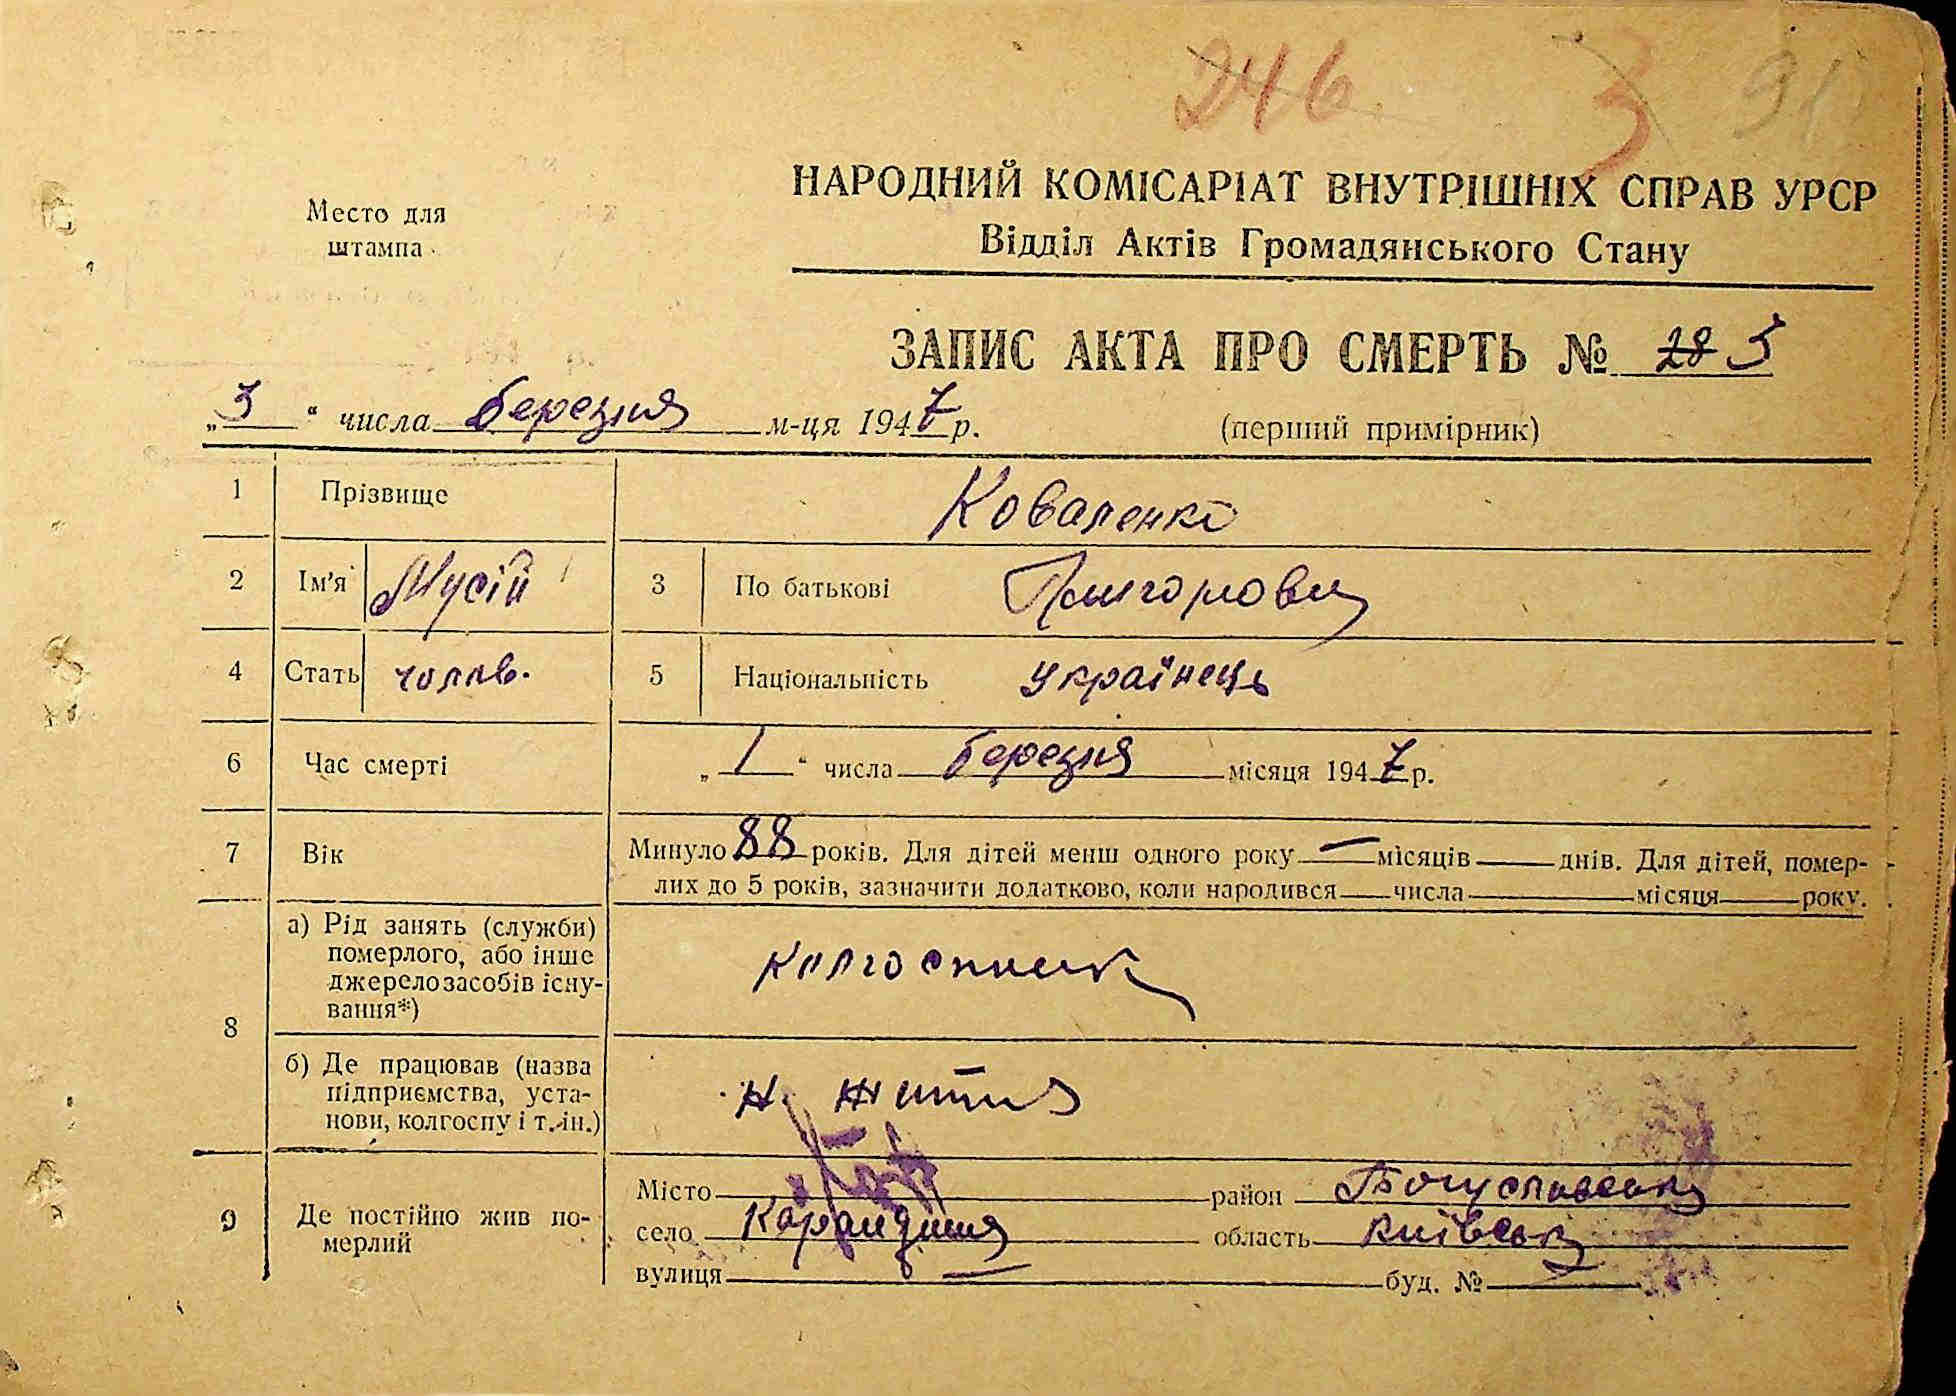 246 3 91
Место для
штампа
НАРОДНИЙ КОМІСАРІАТ ВНУТРІШНІХ СПРАВ УРСР
Відділ Актів Громадянського Стану
ЗАПИС АКТА ПРО СМЕРТЬ № 28 3
„3“ числа березня м-ця 1947 р.
(перший примірник)
1 Прізвище Коваленко
2 Ім'я Мусій 3 По батькові Григорович
4 Стать чолов. 5 Національність українець
6 Час смерті „1“ числа березня місяця 1947 р.
7 Вік Минуло 88 років. Для дітей менш одного року — місяців днів. Для дітей, помер-
лих до 5 років, зазначити додатково, коли народився числа місяця року.
8 а) Рід занять (служби)
померлого, або інше
джерело засобів існу-
вання*)
колгоспник
б) Де працював (назва
підприємства, уста-
нови, колгоспу і т. ін.)
Н. життя
9 Де постійно жив по-
мерлий
Місто район Богуславськ
село Карандинця область Київськ
вулиця буд. №